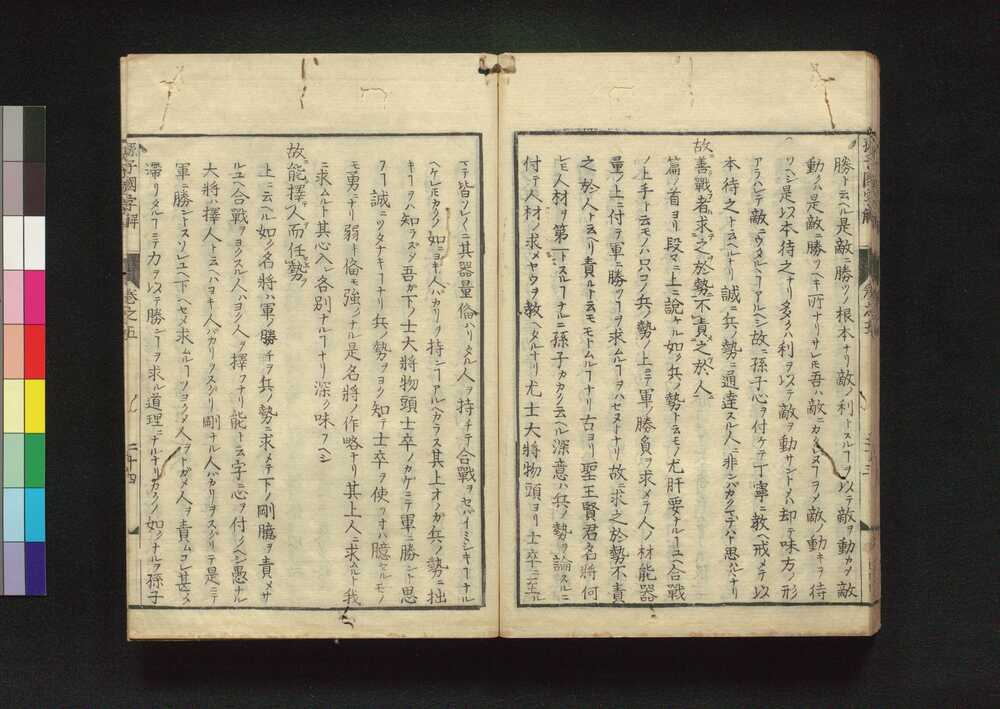 勝ト云ヘル是敵ニ勝ツノ根本ナリ敵ノ利トスルコヲ以テ敵ヲ動カシ敵
動クハ是敵ニ勝ツヘキ所ナリサレハ吾ハ敵ニカタレヌヲメ敵ノ動キヲ待
ツヘシ是以本待之ナリ多クハ利ヲ以テ敵ヲ動サントメハ却テ味方ノ形
アラハレテ敵ニウタルヽコアルヘシ故ニ孫子心ヲ付ケテ丁寧ニ教ヘ戒メテ以
本待之ト云ヘルナリ誠ニ兵ノ勢ニ通達スル人ニ非ンバカクマデハ思ハヌナリ
故善戰者求之於勢不責之於人
篇ノ首ヨリ段々ニ上ニ說ケル如ク兵ノ勢ト云モノ尤肝要ナルコユヘ合戰
ノ上手ト云モノハ只コノ兵ノ勢ノ上ニテ軍ノ勝負ヲ求メテ人ノ材能器
量ノ上ニ付テ軍ニ勝ツコヲ求ムルコヲハセヌトナリ故ニ求之於勢不責
之於人ト云リ責ルト云モモトムルコナリ古ヨリ聖王賢君名將何
レモ人材ヲ第一トスルコナルニ孫子カカク云ヘル深意ハ兵ノ勢ヲ論スルニ
付テ人材ノ求メヤウヲ教ヘタルナリ尤士大將物頭ヨリ士卒ニ至ル
マテ皆ソレ〱ニ其器量備ハリタル人ヲ持チテ合戰ヲセバイミシキコナル
ヘケレ𪜈カクノ如ニヨキ人バカリヲ持ツコアルヘカラス其上オノガ兵ノ勢ニ拙
キコヲハ知ラズ吾カ下ノ士大將物頭士卒ノカケニテ軍ニ勝ント思
フコ誠ニツタナキコナリ兵ノ勢ヲヨク知テ士卒ヲ使フ寸ハ臆セルモノ
モ勇ミナリ弱ト備モ強クナル是名將ノ作略ナリ其上人ニ求ムルト我
ニ求ムルト其心入レ各別ナルコナリ深ク味フヘシ
故能擇人而任勢
上ニ云ヘル如ク名將ハ軍ノ勝チヲ兵ノ勢ニ求メテ下ノ剛臆ヲ責メサ
ルユヘ合戰ヲヨクスル人ハヨク人ヲ擇フナリ能ト云字ニ心ヲ付クヘシ愚ナル
大將ハ擇人ト云ヘハヨキ人バカリヲスグリ剛ナル人バカリヲスグリテ是ニテ
軍ニ勝ントスルユヘ下ヘセメ求ムルコツヨクメ人ヲトガメ人ヲ責ムコレ甚タ
滯リタルコニテ力ヲ以テ勝ンコヲ求ル道理ニナルナリカクノ如クナルハ孫子
孫子國字解
卷之五
二十四